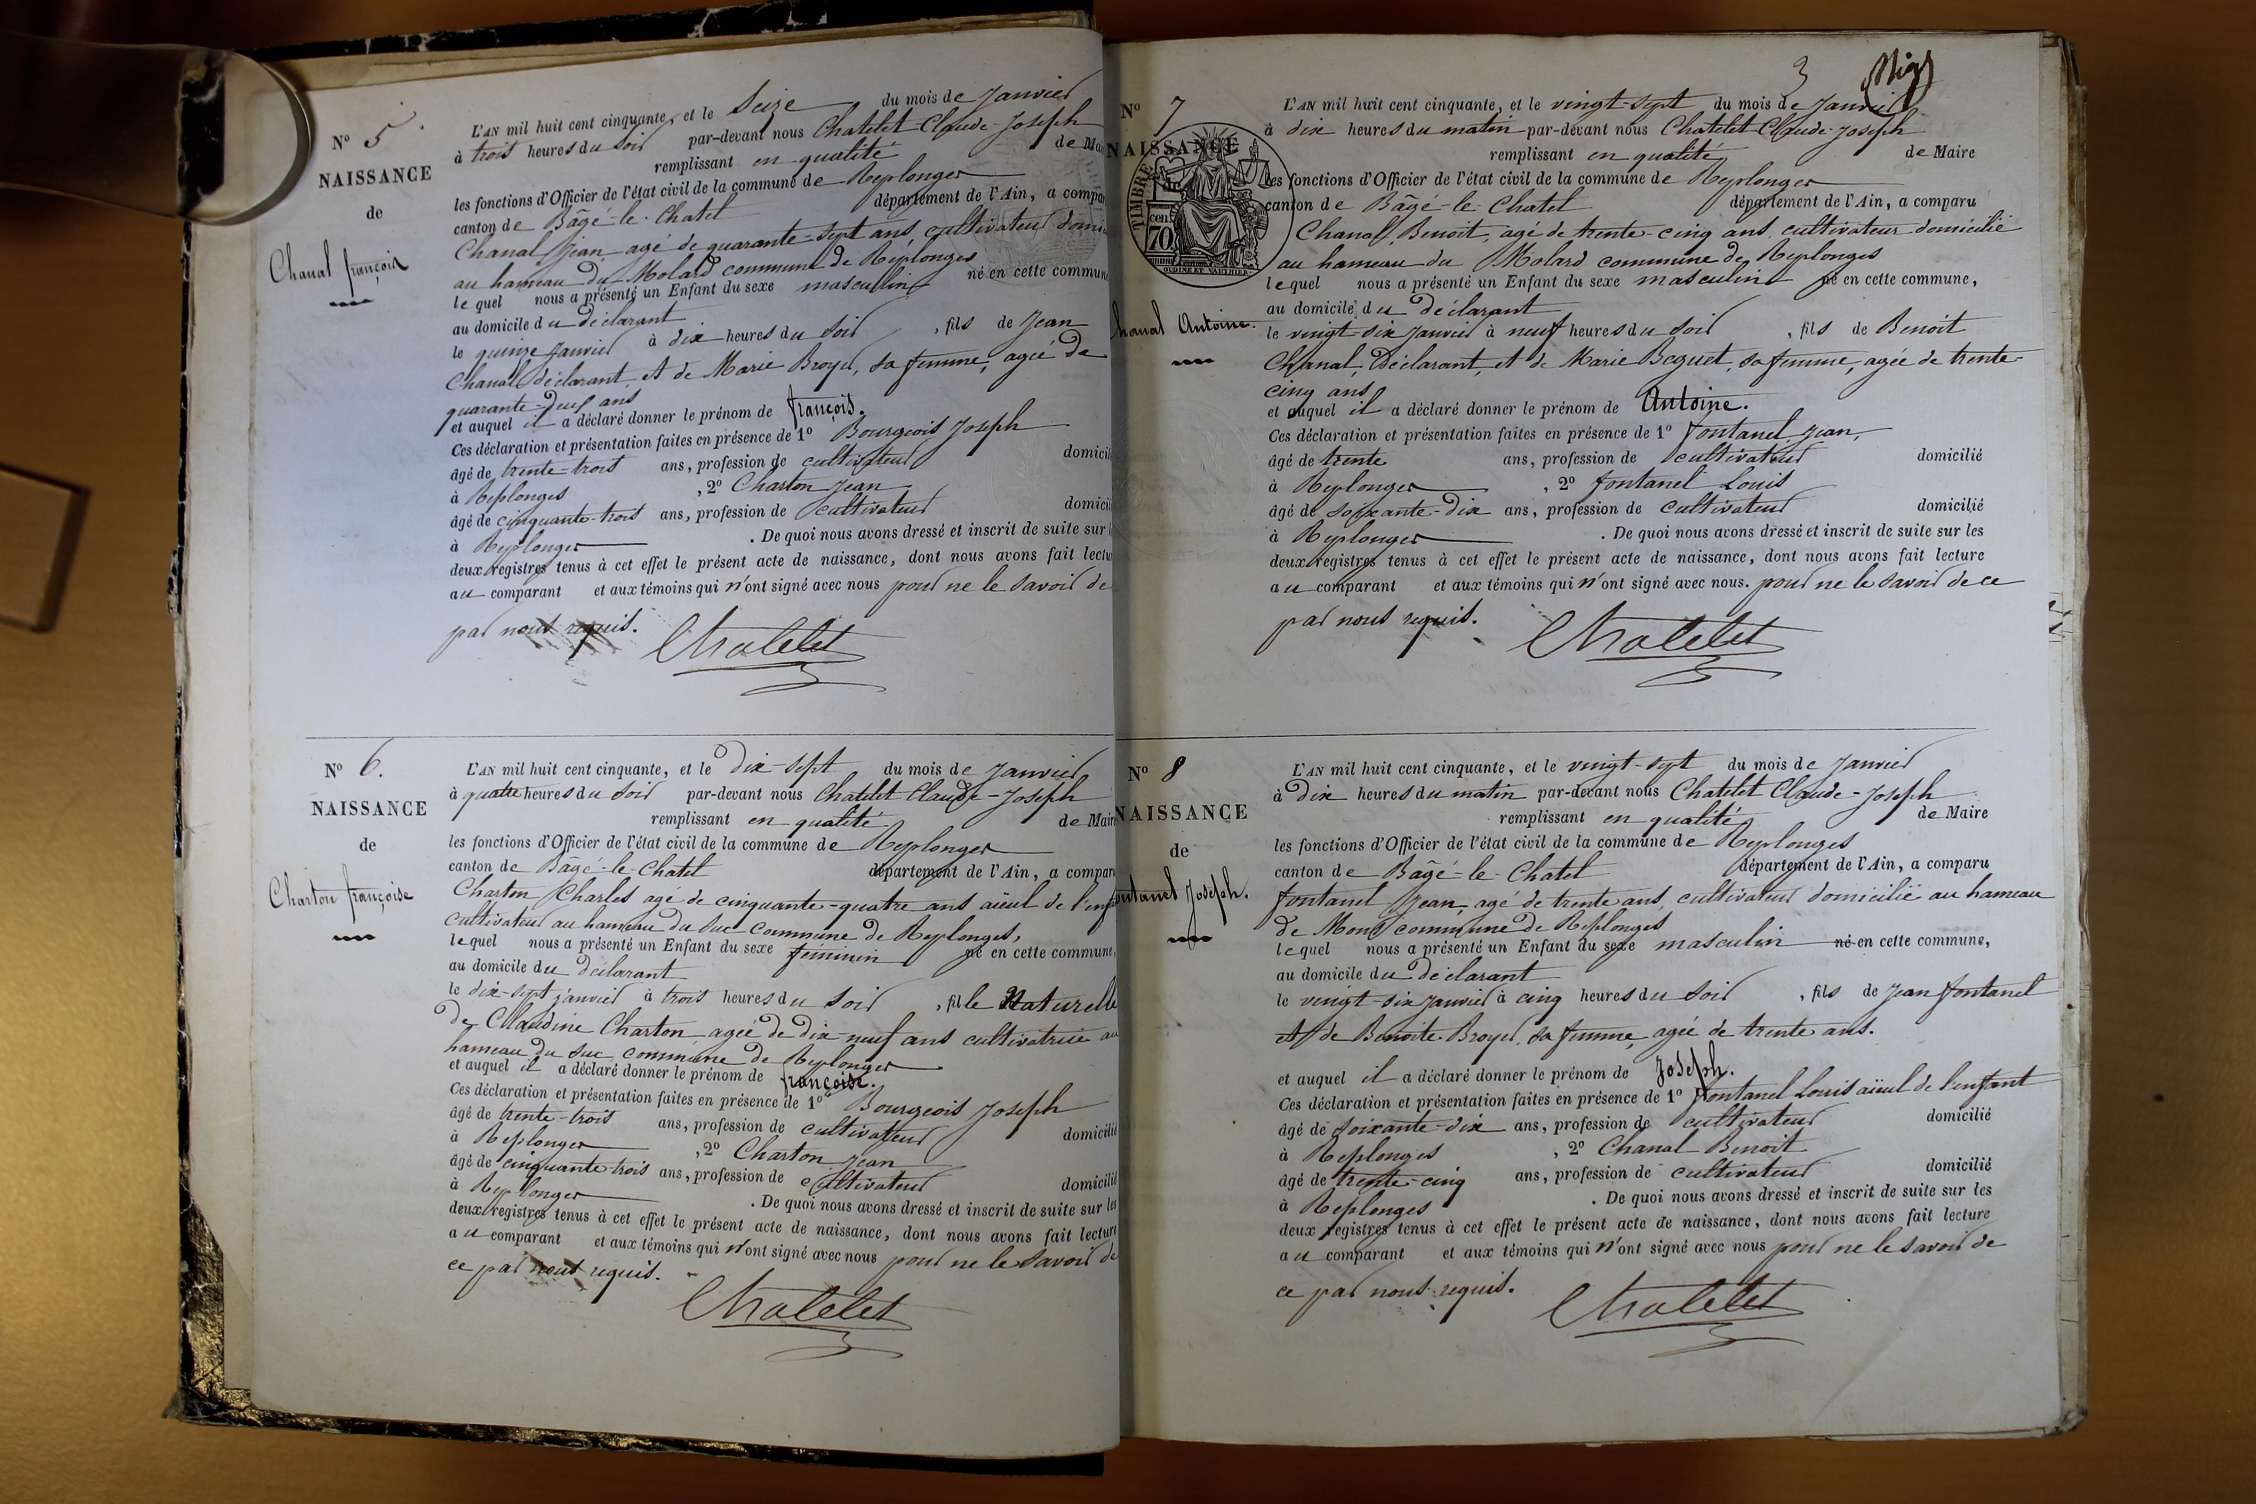 N° 5
NAISSANCE
de
Chanal françois
L'AN mil huit cent cinquante, et le Seize du mois de Janvier
à trois heures du soir par-devant nous Chatelet Claude-Joseph
remplissant en qualité de Mai
les fonctions d'Officier de l'état civil de la commune de Replonges
canton de Bâgé-le-Chatel département de l'Ain, a compar
Chanal Jean agé de quarante-sept ans, cultivateur domi
au hameau du Molard commune de Replonges
lequel nous a présenté un Enfant du sexe masculin né en cette commune
au domicile du déclarant
le quinze Janvier à dix heures du soir, fils de Jean
Chanal déclarant, et de Marie Broyer, sa femme, agée de
quarante-deux ans
et auquel il a déclaré donner le prénom de françois.
Ces déclaration et présentation faites en présence de 1° Bourgeois Joseph
âgé de trente-trois ans, profession de cultivateur domicil
à Replonges, 2° Charton Jean
âgé de cinquante-trois ans, profession de cultivateur domici
à Replonges. De quoi nous avons dressé et inscrit de suite sur l
deux registres tenus à cet effet le présent acte de naissance, dont nous avons fait lectu
au comparant et aux témoins qui n'ont signé avec nous pour ne le savoir de
par nous requis.
Chatelet
N° 6.
NAISSANCE
de
Charton françoise
L'AN mil huit cent cinquante, et le dix-sept du mois de Janvier
à quatre heures du soir par-devant nous Chatelet Claude-Joseph
remplissant en qualité de Maire
les fonctions d'Officier de l'état civil de la commune de Replonges
canton de Bâgé-le-Chatel département de l'Ain, a compar
Charton Charles agé de cinquante-quatre ans aïeul de l'enf
cultivateur au hameau du Suc commune de Replonges,
lequel nous a présenté un Enfant du sexe féminin né en cette commune,
au domicile du déclarant
le dix-sept janvier à trois heures du soir, fille Naturelle
de Claudine Charton agée de dix-neuf ans cultivatrice au
hameau du Suc, commune de Replonges
et auquel il a déclaré donner le prénom de françoise.
Ces déclaration et présentation faites en présence de 1° Bourgeois Joseph
âgé de trente-trois ans, profession de cultivateur domicilié
à Replonges, 2° Charton Jean
âgé de cinquante-trois ans, profession de cultivateur domicilié
à Replonges. De quoi nous avons dressé et inscrit de suite sur les
deux registres tenus à cet effet le présent acte de naissance, dont nous avons fait lecture
au comparant et aux témoins qui n'ont signé avec nous pour ne le savoir de
ce par nous requis.
Chatelet
3
N° 7
NAISSANCE
de
TIMBRE
cen. 70
OUDINÉ ET VAUTHIER
hanal Antoine.
L'AN mil huit cent cinquante, et le vingt-sept du mois de Janvier
à dix heures du matin par-devant nous Chatelet Claude-Joseph
remplissant en qualité de Maire
les fonctions d'Officier de l'état civil de la commune de Replonges
canton de Bâgé-le-Chatel département de l'Ain, a comparu
Chanal, Benoit, agé de trente-cinq ans, cultivateur domicilié
au hameau du Molard commune de Replonges
lequel nous a présenté un Enfant du sexe masculin né en cette commune,
au domicile du déclarant
le vingt-six Janvier à neuf heures du soir, fils de Benoit
Chanal, déclarant, et de Marie Boguet, sa femme, agée de trente-
cinq ans
et auquel il a déclaré donner le prénom de Antoine.
Ces déclaration et présentation faites en présence de 1° fontanel Jean,
âgé de trente ans, profession de cultivateur domicilié
à Replonges, 2° fontanel Louis
âgé de soixante-dix ans, profession de cultivateur domicilié
à Replonges. De quoi nous avons dressé et inscrit de suite sur les
deux registres tenus à cet effet le présent acte de naissance, dont nous avons fait lecture
au comparant et aux témoins qui n'ont signé avec nous. pour ne le savoir de ce
par nous requis.
Chatelet
N° 8
NAISSANCE
de
ontanel Joseph.
L'AN mil huit cent cinquante, et le vingt-sept du mois de Janvier
à dix heures du matin par-devant nous Chatelet Claude-Joseph
remplissant en qualité de Maire
les fonctions d'Officier de l'état civil de la commune de Replonges
canton de Bâgé-le-Chatel département de l'Ain, a comparu
fontanel Jean, agé de trente ans, cultivateur domicilié au hameau
de Mons commune de Replonges
lequel nous a présenté un Enfant du sexe masculin né en cette commune,
au domicile du déclarant
le vingt-six Janvier à cinq heures du soir, fils de Jean fontanel
et de Benoite Broyer, sa femme, agée de trente ans.
et auquel il a déclaré donner le prénom de Joseph.
Ces déclaration et présentation faites en présence de 1° fontanel Louis aïeul de l'enfant
âgé de soixante-dix ans, profession de cultivateur domicilié
à Replonges, 2° Chanal Benoit
âgé de trente-cinq ans, profession de cultivateur domicilié
à Replonges. De quoi nous avons dressé et inscrit de suite sur les
deux registres tenus à cet effet le présent acte de naissance, dont nous avons fait lecture
au comparant et aux témoins qui n'ont signé avec nous pour ne le savoir de
ce par nous requis.
Chatelet